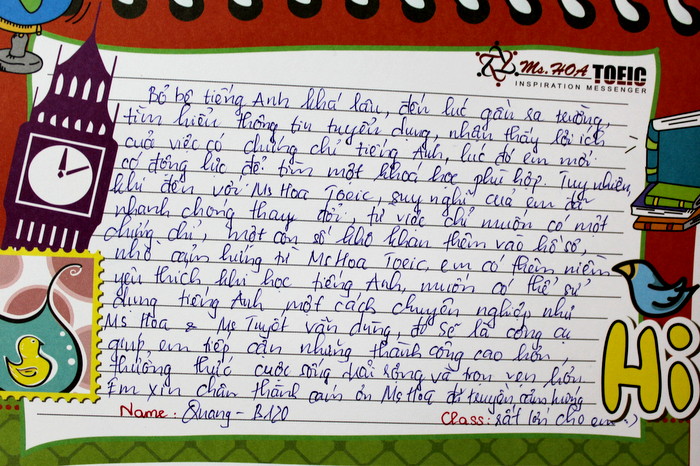 Ms. HOA TOEIC
INSPIRATION MESSENGER
Bỏ bê tiếng Anh khá lâu, đến lúc gần ra trường,
tìm hiểu thông tin tuyển dụng, nhận thấy lợi ích
của việc có chứng chỉ tiếng Anh, lúc đó em mới
có động lực để tìm một khoá học phù hợp. Tuy nhiên,
khi đến với Ms Hoa Toeic, suy nghĩ của em đã
nhanh chóng thay đổi, từ việc chỉ muốn có một
chứng chỉ, một con số khô khan thêm vào hồ sơ,
nhờ cảm hứng từ Ms Hoa Toeic, em có thêm niềm
yêu thích khi học tiếng Anh, muốn có thể sử
dụng tiếng Anh một cách chuyên nghiệp như
Ms Hoa & Ms Tuyết vận dụng, đó sẽ là công cụ
giúp em tiếp cận những thành công cao hơn,
thưởng thức cuộc sống dài rộng và trọn vẹn hơn.
Em xin chân thành cảm ơn Ms Hoa đã truyền cảm hứng
Name: Quang - B120
Class: rất lớn cho em :)
Hi